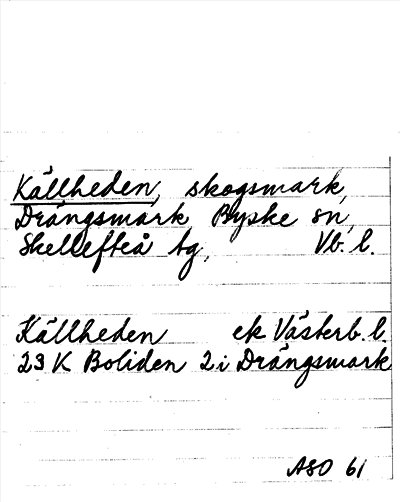 Källheden, skogsmark,
Drängsmark Byske sn,
Skellefteå tg, Vb. l.
Källheden ek Västerb. l.
23 K Boliden 2 i Drängsmark
ASO 61